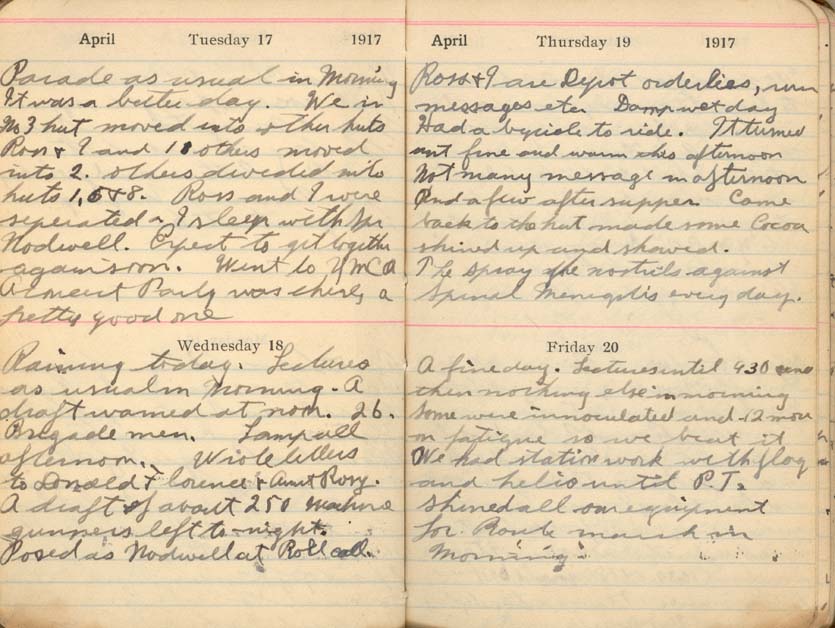 April Tuesday 17 1917
Parade as usual in Morning
It was a better day. We in
No 3 hut moved into other huts
Ross & I and 10 others moved
into 2. others divided into
huts 1, 6 & 8. Ross and I were
seperated & I sleep with Spr
Nodwell. Expect to get together
again soon. Went to YMCA
A Concert Party was there, a
pretty good one
Wednesday 18
Raining today. Lectures
as usual in Morning. A
draft warned at noon. 26.
Brigade men. Lamp all
afternoon. Wrote letters
to Donald Florence & Aunt Rosy.
A draft of about 250 machine
gunners left to-night.
Posed as Nodwell at Roll call.
April Thursday 19 1917
Ross & I are Depot orderlies, run
messages etc. Damp wet day
Had a bycicle to ride. It turned
out fine and warm this afternoon
Not many message in afternoon
And a few after supper. Came
back to the hut made some Cocoa
shined up and shaved.
The spray the nostrils against
Spinal Menegitis every day.
Friday 20
A fine day. Lectures until 930 and
then nothing else in morning
Some were innoculated and 12 more
on fatigue so we beat it
We had station work with flag
and helio until P.T.
Shined all our equipment
for Route march in
Morning.